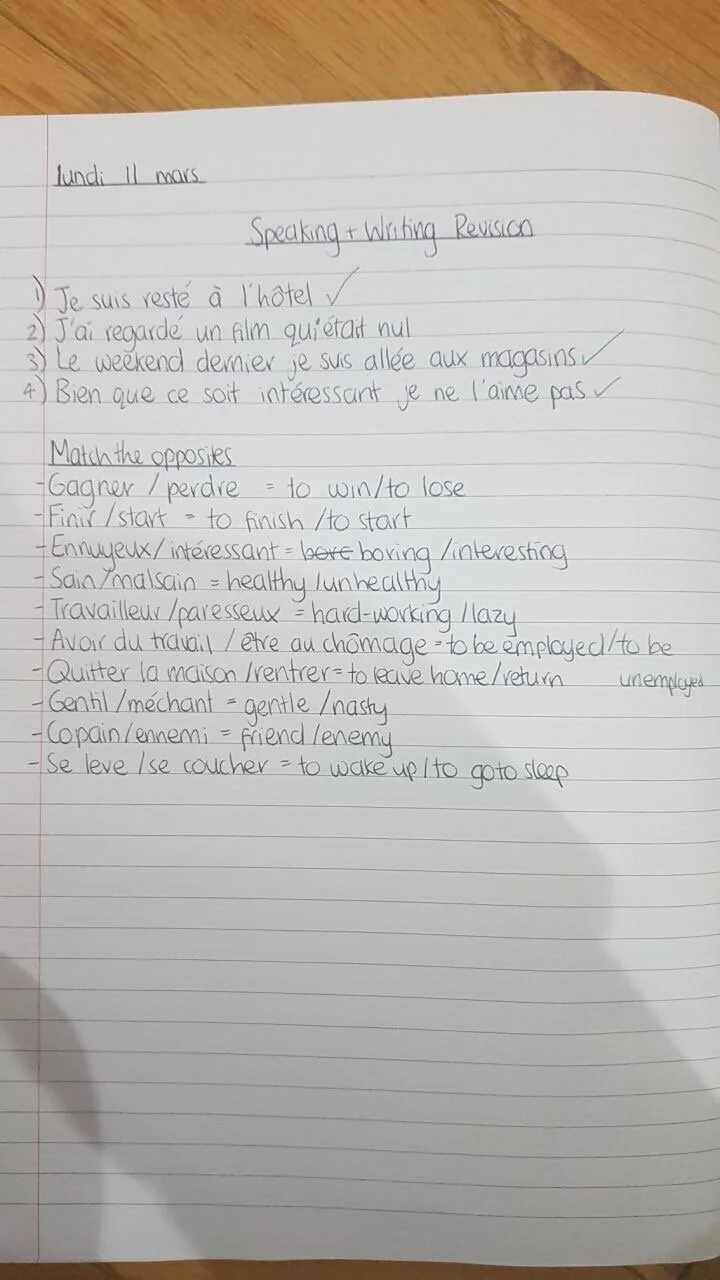 lundi 11 mars
Speaking + Writing Revision
1) Je suis resté à l'hôtel ✓
2) J'ai regardé un film qui était nul
3) Le weekend dernier je suis allée aux magasins ✓
4) Bien que ce soit intéressant je ne l'aime pas ✓
Match the opposites
- Gagner / perdre = to win/to lose
- Finir / start = to finish / to start
- Ennuyeux/intéressant = bore boring /interesting
- Sain/malsain = healthy /unhealthy
- Travailleur /paresseux = hard-working / lazy
- Avoir du travail / être au chômage = to be employed/to be
- Quitter la maison /rentrer = to leave home/return unemployed
- Gentil /méchant = gentle /nasty
- Copain/ennemi = friend /enemy
- Se leve /se coucher = to wake up / to go to sleep